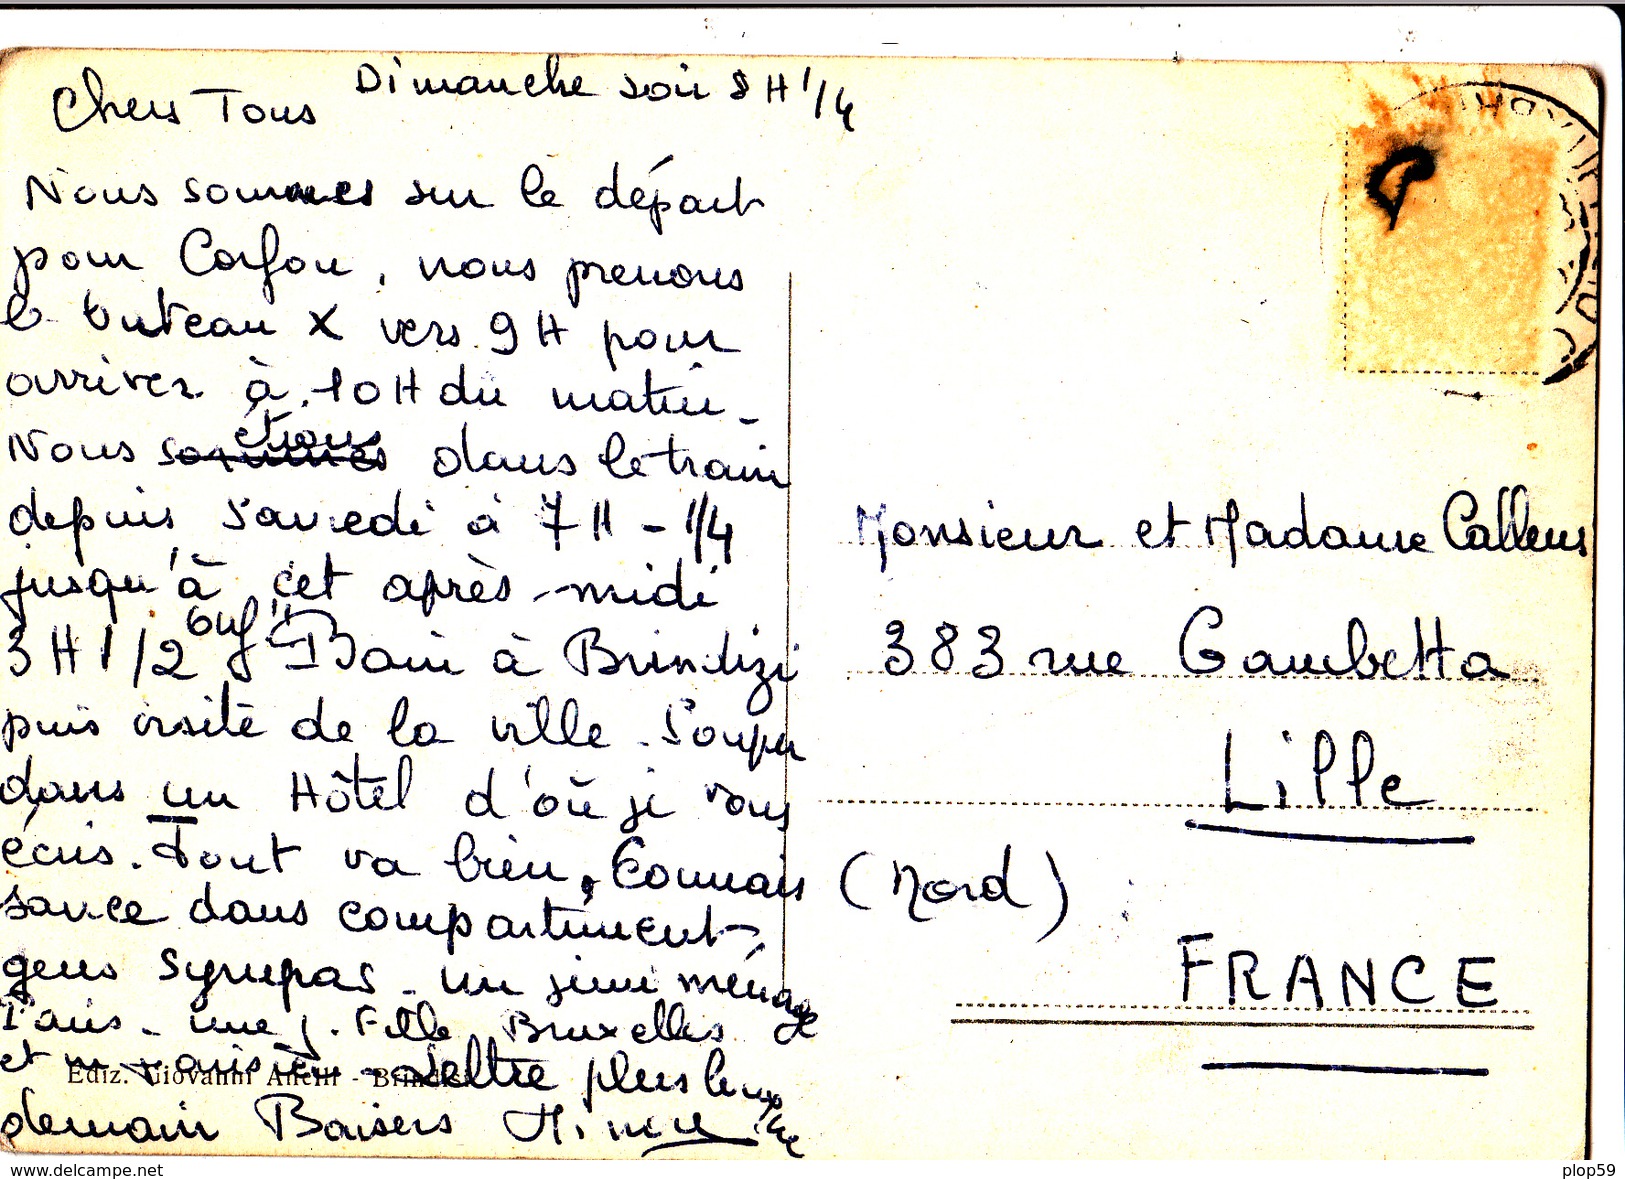 Dimanche soir 8 H 1/4
Chers Tous
Nous sommes sur le départ
pour Corfou, nous prenons
le bateau X vers 9 H pour
arriver à 10 H du matin -
Nous sommes étions dans le train
depuis samedi à 7 H - 1/4
jusqu'à cet après-midi
3 H 1/2 ouf!! Bain à Brindizi
puis visite de la ville. Souper
dans un Hôtel d'où je vous
écris. Tout va bien, Connais
sance dans compartiment
gens sympas - un jeune ménage
Paris - une j. Fille Bruxelles
et un - lettre plus longue
demain Baisers
Ediz. Giovanni Anelli - Brindisi
Monsieur et Madame Callens
383 rue Gambetta
Lille
(Nord)
FRANCE
www.delcampe.net
plop59